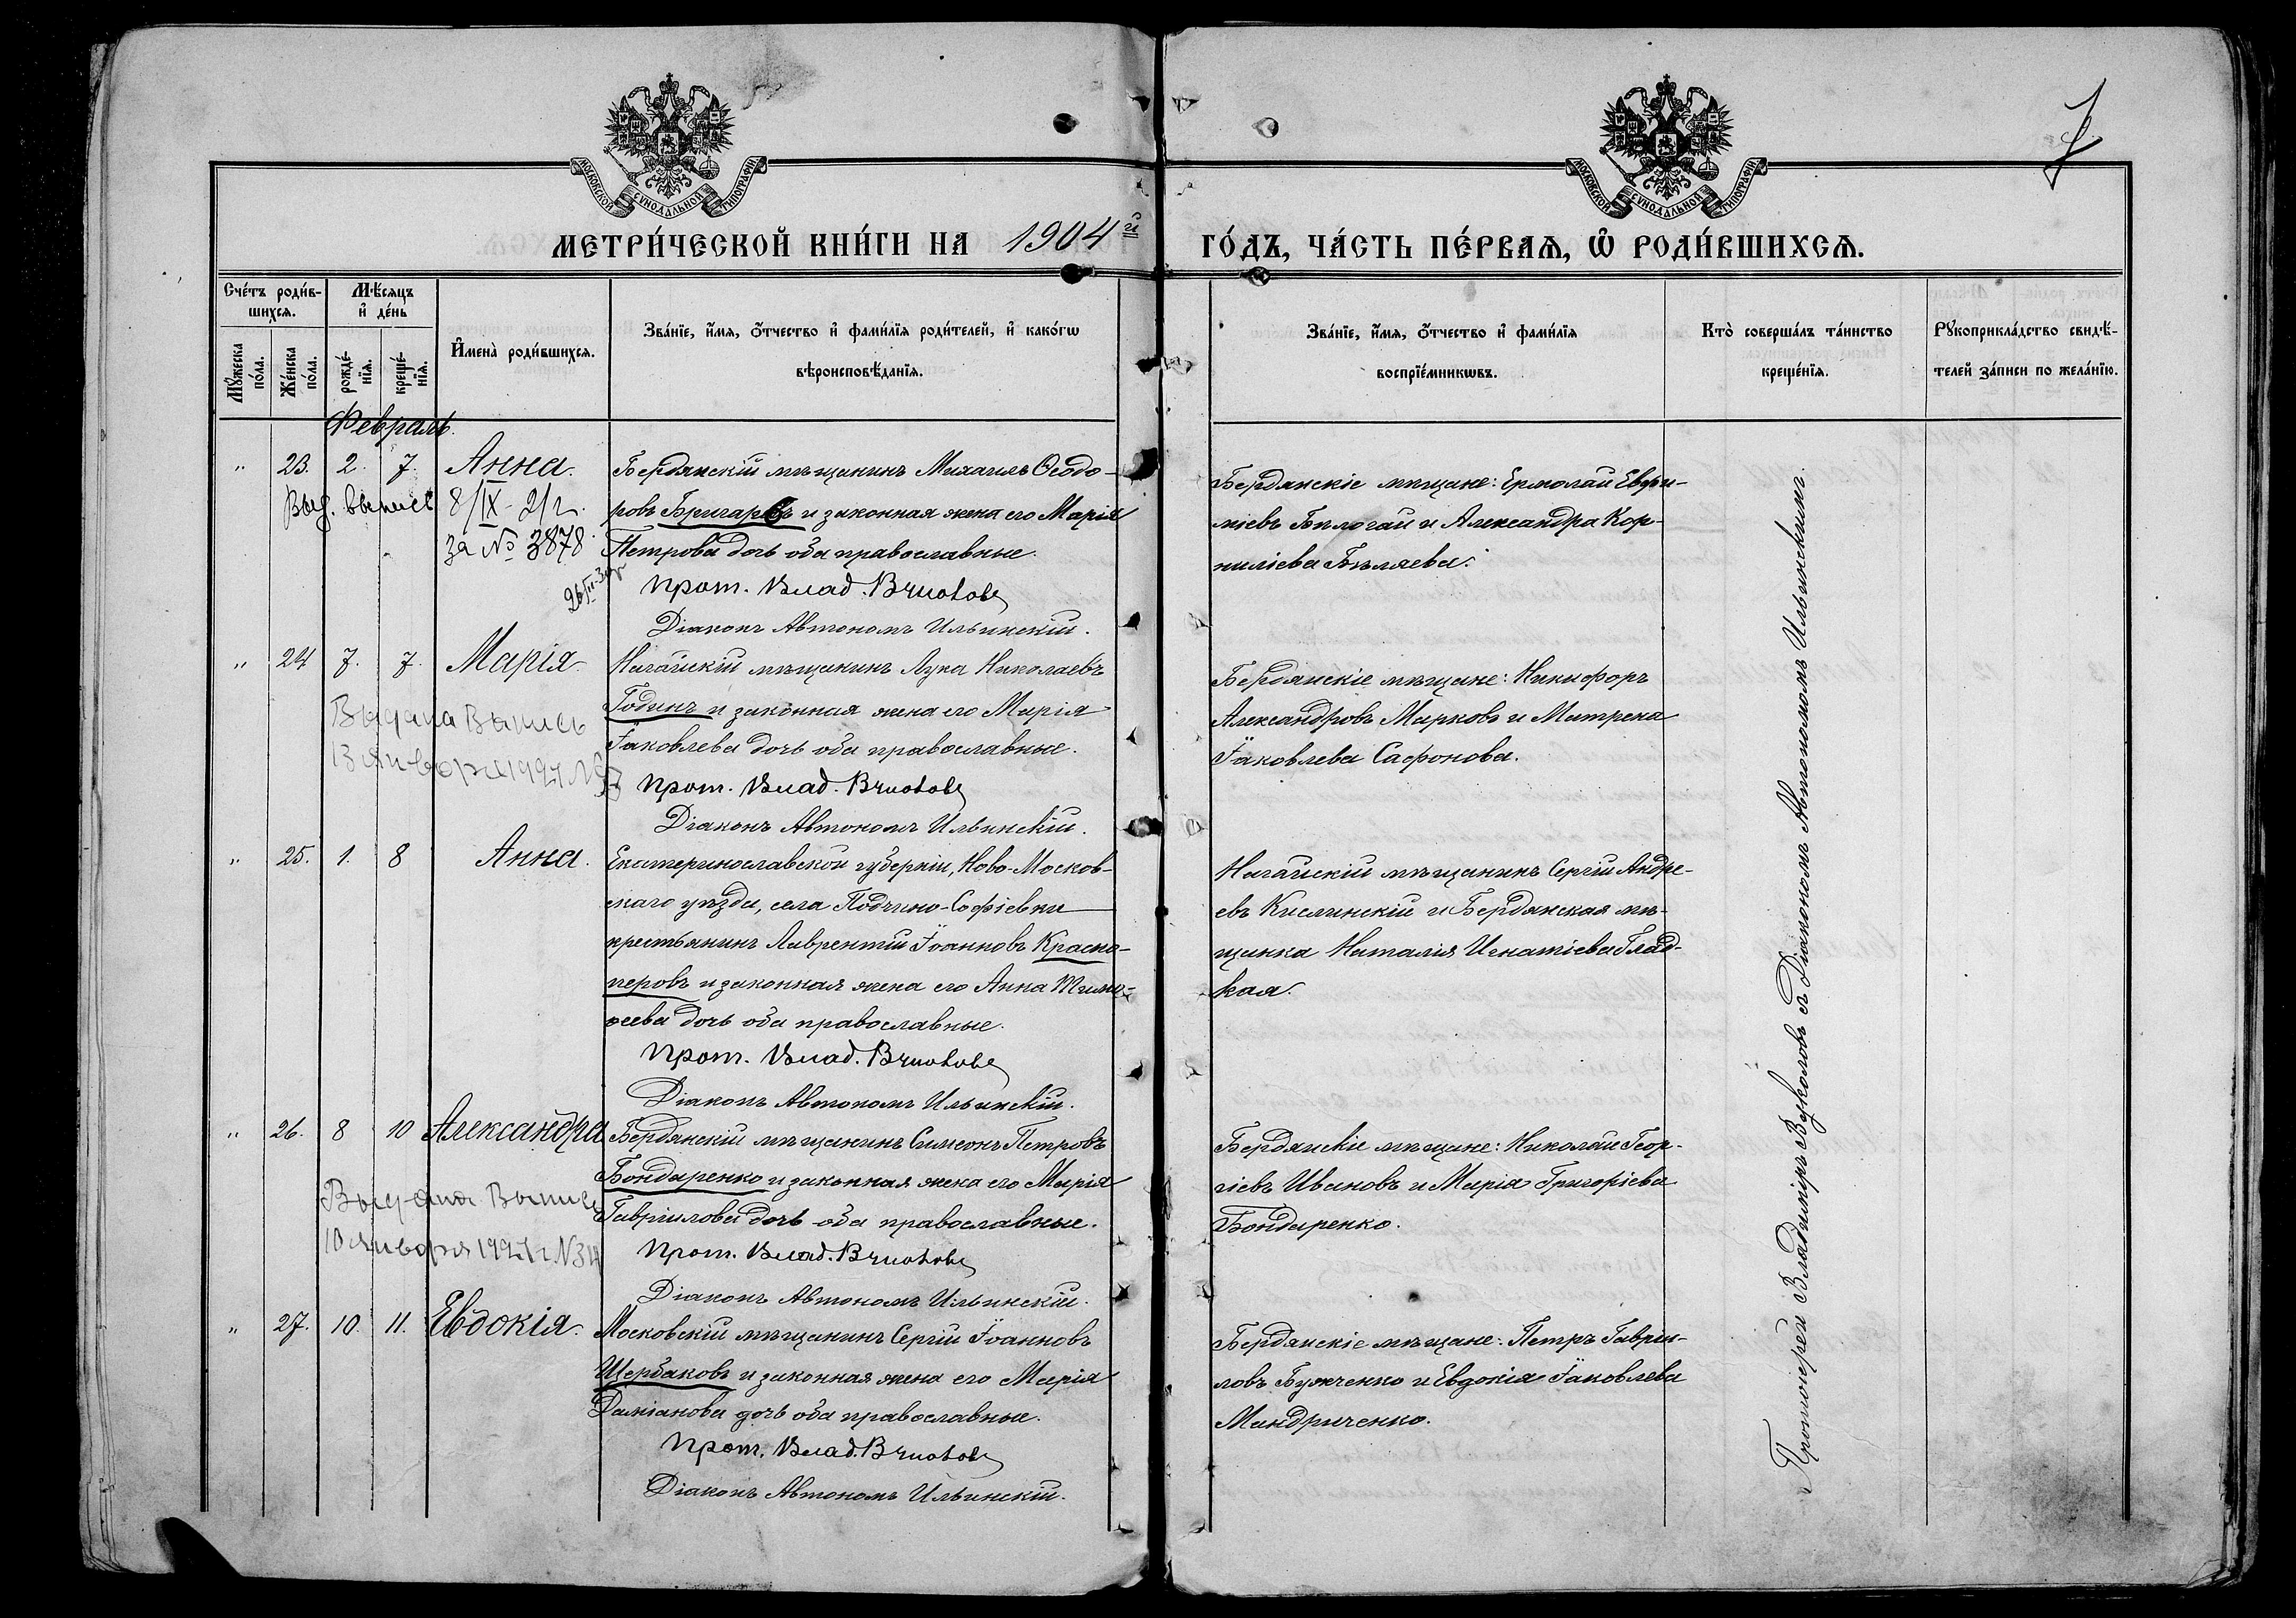 7
МОСКОВСКОЙ СѴНОДАЛЬНОЙ ТИПОГРАФІИ
МОСКОВСКОЙ СѴНОДАЛЬНОЙ ТИПОГРАФІИ
МЕТРИ́ЧЕСКОЙ КНИ́ГИ НА 1904й
ГО́ДЪ, ЧА́СТЬ ПЕ́РВАѦ, Ѿ РОДИ́ВШИХСѦ.
Сче́тъ роди́в-
шихсѧ.
Мꙋ́жеска по́ла.
Же́нска по́ла.
Мѣ́сѧцъ и҆ де́нь
рожде́-нїѧ.
креще́-нїѧ.
И҆мена̀ роди́вшихсѧ.
Зва́нїе, и҆́мѧ, ѻ҆́тчество и҆ фами́лїѧ роди́телей, и҆ како́гѡ
вѣроисповѣ́данїѧ.
Зва́нїе, и҆́мѧ, ѻ҆́тчество и҆ фами́лїѧ
воспрїе́мникѡвъ.
Кто̀ соверша́лъ та́инство
креще́нїѧ.
Рꙋкоприкла́дство свидѣ́-
телей за́писи по жела́нїю.
Февраль.
" 23. 2. 7. Анна.
Выд. выпись 8/IX-21г.
за № 3878.
Бердянскій мѣщанинъ Михаилъ Ѳеодо-
ровъ Бригаровъ и законная жена его Марія
Петрова дочь оба православные.
Прот. Влад. Вуколовъ
Діаконъ Автономъ Ильинскій.
Бердянскіе мѣщане: Ермолай Евфи-
міевъ Бѣлогай и Александра Кор-
ниліева Бѣляева.
" 24 7. 7. Марія
Выдана Выпись
13 января 1927
Нагайскій мѣщанинъ Лука Николаевъ
Годинъ и законная жена его Марія
Іаковлева дочь оба православные.
Прот. Влад. Вуколовъ
Діаконъ Автономъ Ильинскій.
Бердянскіе мѣщане: Никифоръ
Александровъ Марковъ и Матрена
Іаковлева Сафонова.
" 25. 1. 8 Анна.
Екатеринославской губерніи, Ново-Москов-
скаго уѣзда, села Софіевки
крестьянинъ Лаврентій Іоанновъ Красно-
перовъ и законная жена его Анна Тимо-
ѳеева дочь оба православные.
Прот. Влад. Вуколовъ
Діаконъ Автономъ Ильинскій.
Нагайскій мѣщанинъ Сергій Андре-
евъ Кислинскій и Бердянская мѣ-
щанка Наталія Игнатіева Глад-
кая.
" 26. 8 10 Александра
Выдана Выпись
10 января 1927г №
Бердянскій мѣщанинъ Симеонъ Петровъ
Бондаренко и законная жена его Марія
Гавріилова дочь оба православные.
Прот. Влад. Вуколовъ
Діаконъ Автономъ Ильинскій.
Бердянскіе мѣщане: Николай Геор-
гіевъ Ивановъ и Марія Григоріева
Бондаренко.
" 27. 10. 11. Евдокія.
Московскій мѣщанинъ Сергій Іоанновъ
Щербаковъ и законная жена его Марія
Даміанова дочь оба православные.
Прот. Влад. Вуколовъ
Діаконъ Автономъ Ильинскій.
Бердянскіе мѣщане: Петръ Гавріи-
ловъ Бужченко и Евдокія Іаковлева
Мандриченко.
Протоіерей Владиміръ Вуколовъ съ Діакономъ Автономомъ Ильинскимъ